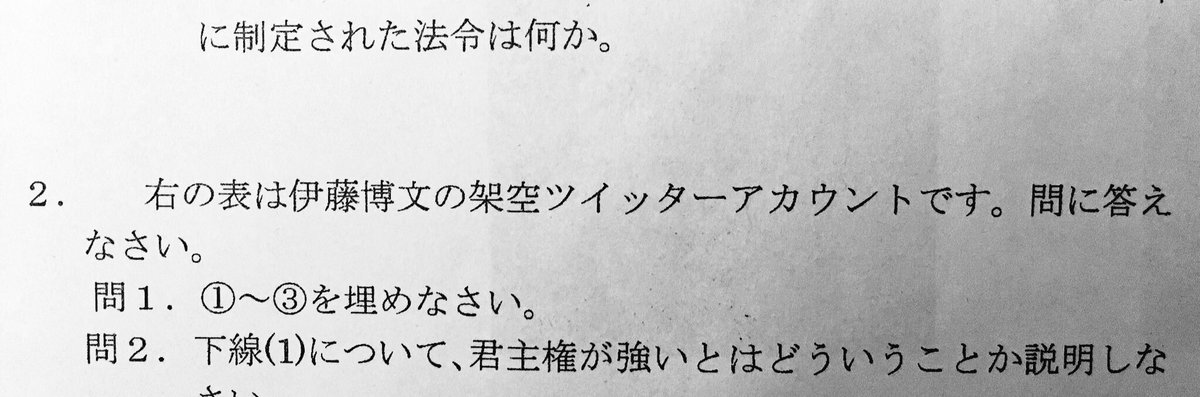 に制定された法令は何か。
2．　右の表は伊藤博文の架空ツイッターアカウントです。問に答え
なさい。
問1．①～③を埋めなさい。
問2．下線(1)について、君主権が強いとはどういうことか説明しな
さい